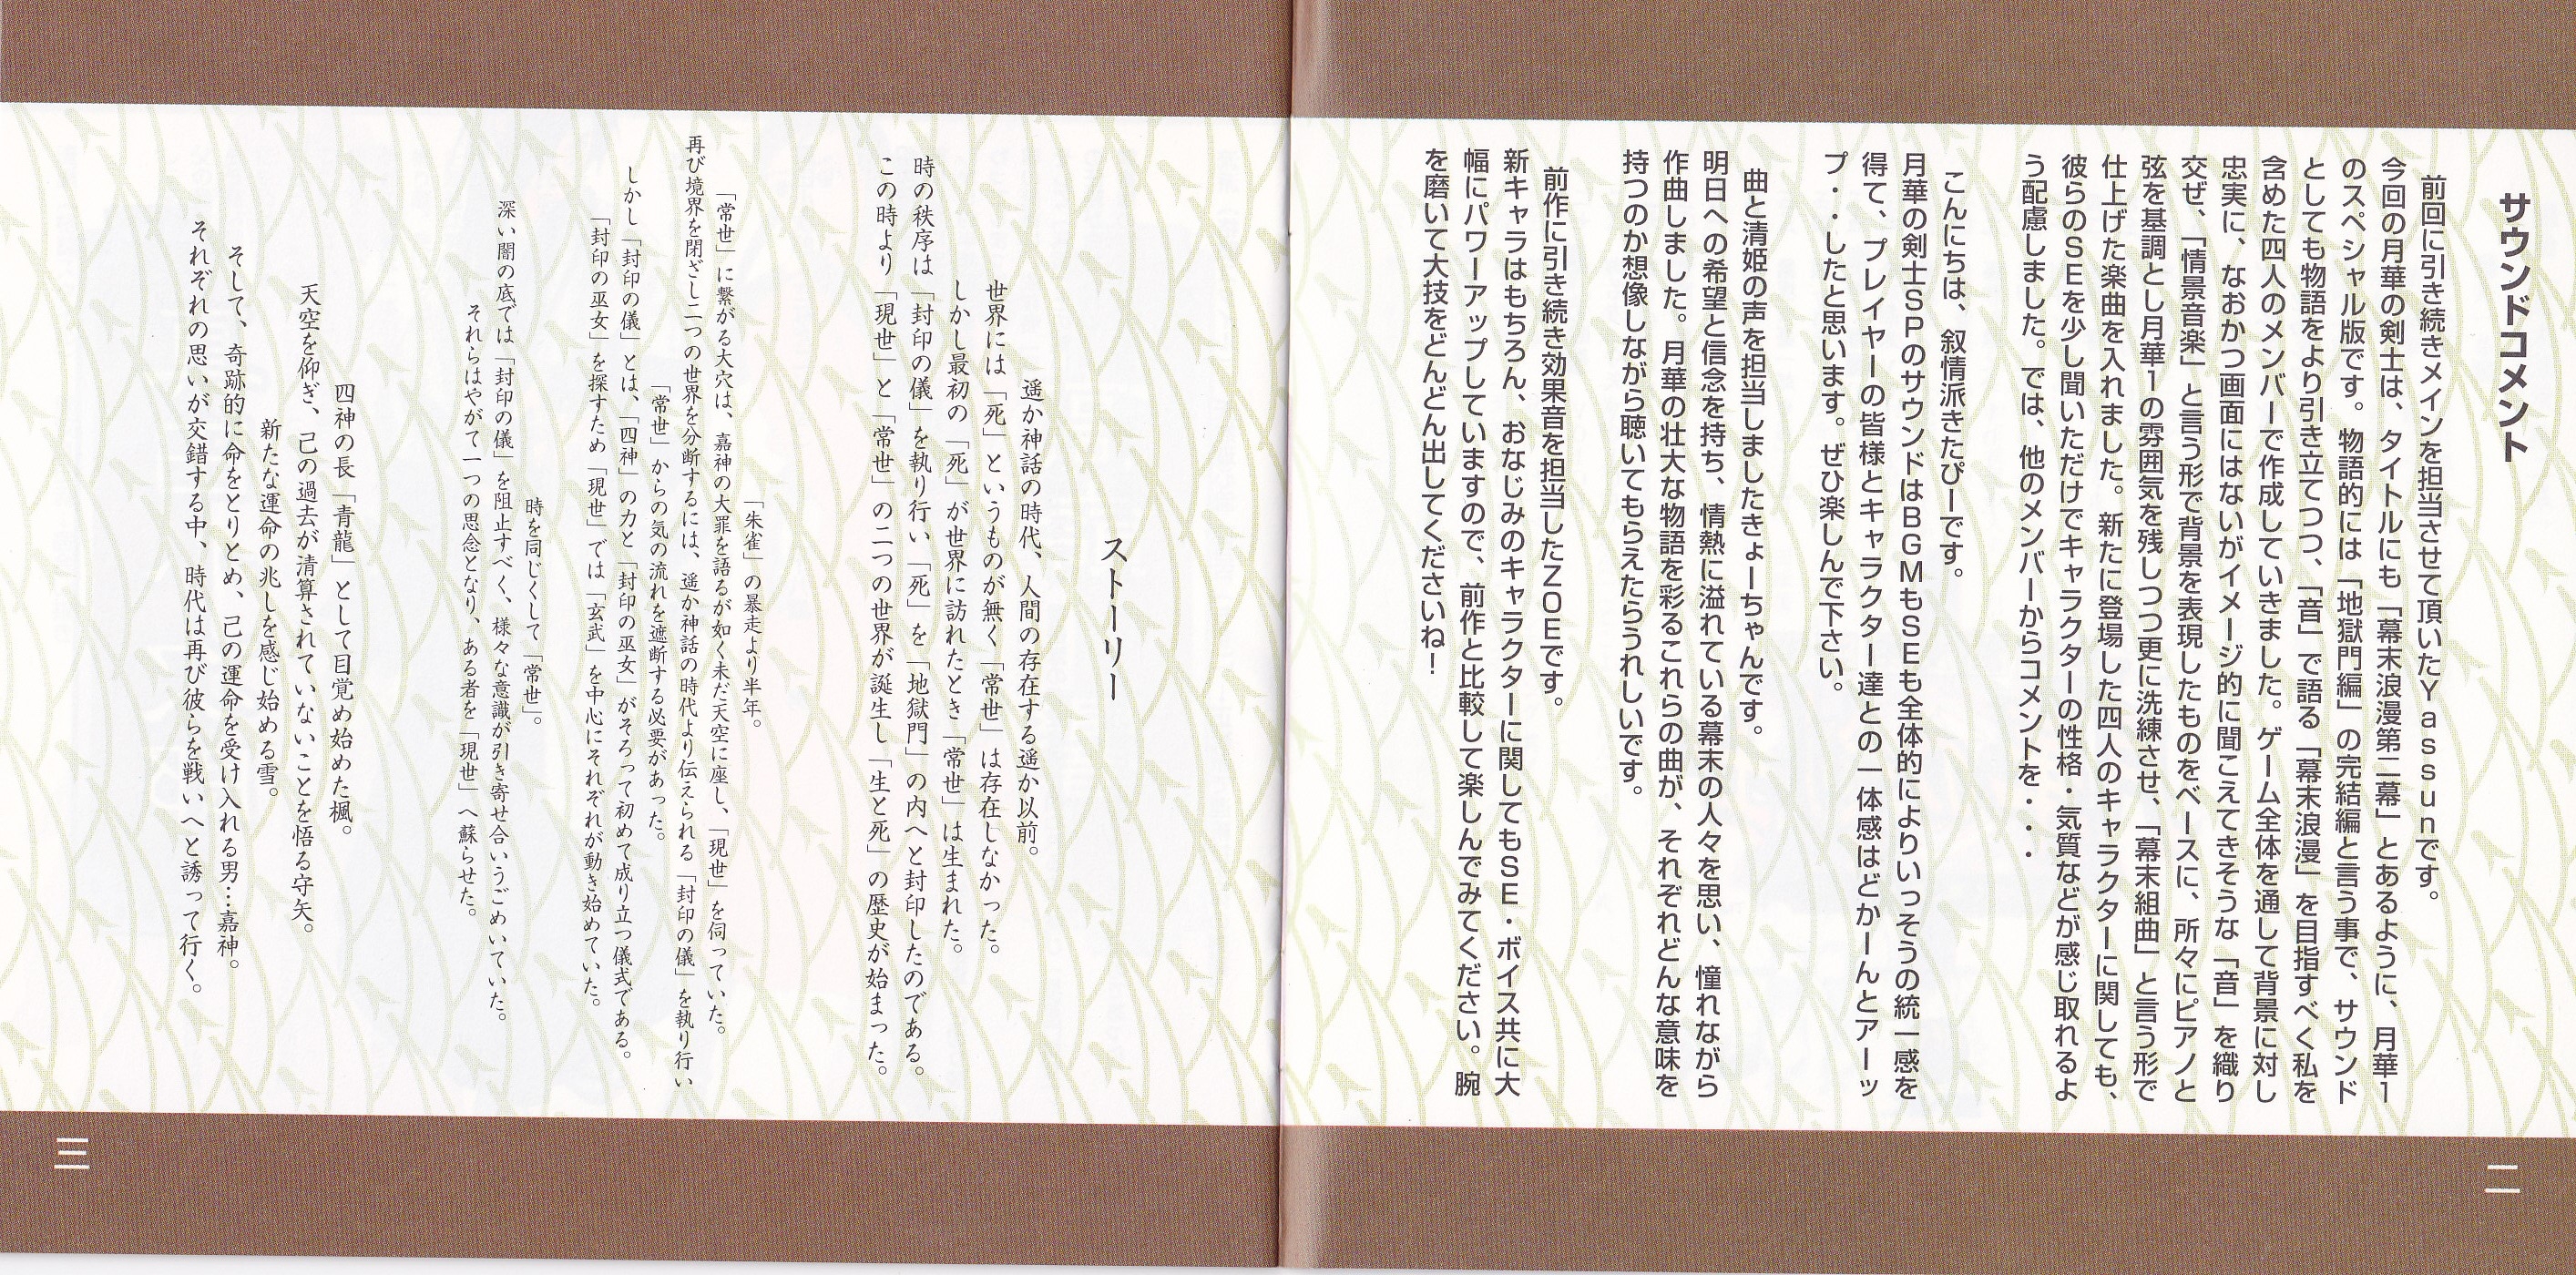 サウンドコメント
前回に引き続きメインを担当させて頂いたＹａｓｓｕｎです。
今回の月華の剣士は、タイトルにも「幕末浪漫第二幕」とあるように、月華１
のスペシャル版です。物語的には「地獄門編」の完結編と言う事で、サウンド
としても物語をより引き立てつつ、「音」で語る「幕末浪漫」を目指すべく私を
含めた四人のメンバーで作成していきました。ゲーム全体を通して背景に対し
忠実に、なおかつ画面にはないがイメージ的に聞こえてきそうな「音」を織り
交ぜ、「情景音楽」と言う形で背景を表現したものをベースに、所々にピアノと
弦を基調とし月華１の雰囲気を残しつつ更に洗練させ、「幕末組曲」と言う形で
仕上げた楽曲を入れました。新たに登場した四人のキャラクターに関しても、
彼らのＳＥを少し聞いただけでキャラクターの性格・気質などが感じ取れるよ
う配慮しました。では、他のメンバーからコメントを・・・
こんにちは、叙情派きたぴーです。
月華の剣士ＳＰのサウンドはＢＧＭもＳＥも全体的によりいっそうの統一感を
得て、プレイヤーの皆様とキャラクター達との一体感はどかーんとアーッ
プ・・したと思います。ぜひ楽しんで下さい。
曲と清姫の声を担当しましたきょーちゃんです。
明日への希望と信念を持ち、情熱に溢れている幕末の人々を思い、憧れながら
作曲しました。月華の壮大な物語を彩るこれらの曲が、それぞれどんな意味を
持つのか想像しながら聴いてもらえたらうれしいです。
前作に引き続き効果音を担当したＺＯＥです。
新キャラはもちろん、おなじみのキャラクターに関してもＳＥ・ボイス共に大
幅にパワーアップしていますので、前作と比較して楽しんでみてください。腕
を磨いて大技をどんどん出してくださいね！
二
ストーリー
遥か神話の時代、人間の存在する遥か以前。
世界には「死」というものが無く「常世」は存在しなかった。
しかし最初の「死」が世界に訪れたとき「常世」は生まれた。
時の秩序は「封印の儀」を執り行い、「死」を「地獄門」の内へと封印したのである。
この時より「現世」と「常世」の二つの世界が誕生し「生と死」の歴史が始まった。
「朱雀」の暴走より半年。
「常世」に繋がる大穴は、嘉神の大罪を語るが如く未だ天空に座し、「現世」を伺っていた。
再び境界を閉ざし二つの世界を分断するには、遥か神話の時代より伝えられる「封印の儀」を執り行い
「常世」からの気の流れを遮断する必要があった。
しかし「封印の儀」とは、「四神」の力と「封印の巫女」がそろって初めて成り立つ儀式である。
「封印の巫女」を探すため「現世」では「玄武」を中心にそれぞれが動き始めていた。
時を同じくして「常世」。
深い闇の底では「封印の儀」を阻止すべく、様々な意識が引き寄せ合いうごめいていた。
それらはやがて一つの思念となり、ある者を「現世」へ蘇らせた。
四神の長「青龍」として目覚め始めた楓。
天空を仰ぎ、己の過去が清算されていないことを悟る守矢。
新たな運命の兆しを感じ始める雪。
そして、奇跡的に命をとりとめ、己の運命を受け入れる男…嘉神。
それぞれの思いが交錯する中、時代は再び彼らを戦いへと誘って行く。
三